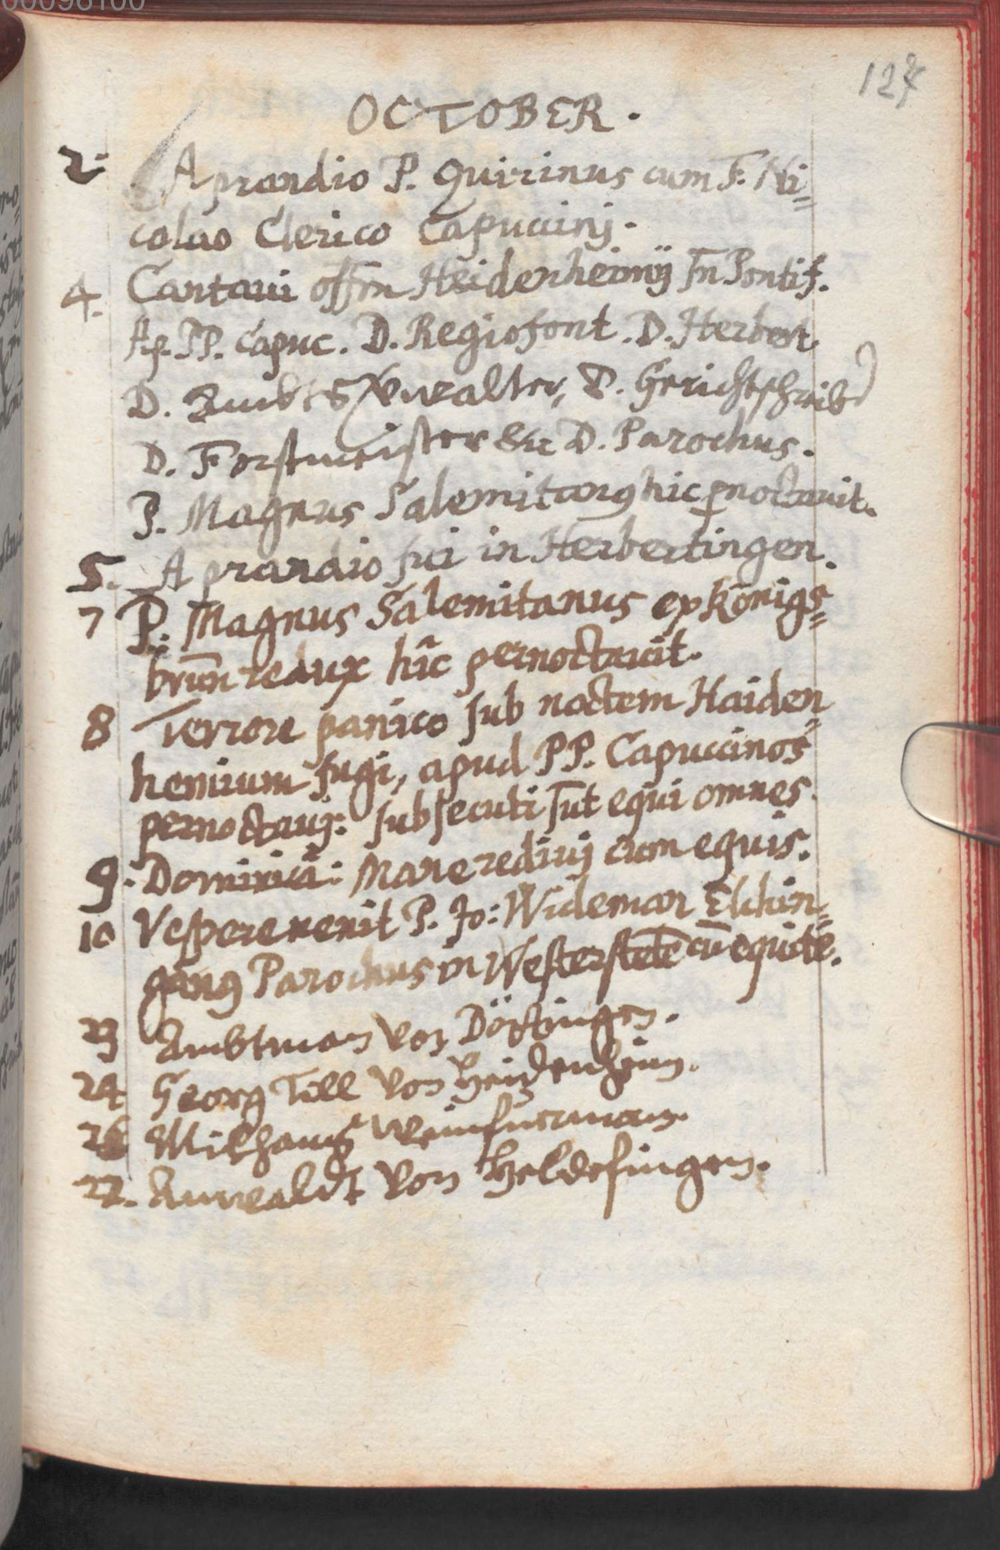 00098100
127
OCTOBER.
2. A prandio P. Quirinus cum F. Ni=
colao Clerico Capucinj.
4. Cantavi offm Heidenhemij Jn Pontif.
Ap. PP. Capuc. D. Regiofont. D. Herbert
D. Ambts Verwalter, D. Gerichtschreib
D. Forstmeister D. Parochus.
P. Magnus Salemitang hic pnoctavit.
5. A prandio fui in Herbertingen.
7 P. Magnus Salemitanus ex Königs=
brun̄ redux hic pernoctavit.
8 Terrore panico sub noctem Haiden=
hemium fugi, apud PP. Capuccinos
pernoctavj. Subsecuti sūt equi omnes.
9. Dominicā: Mane redivj cum equis.
10 Vespere venit P. Jo: Wideman Elchin=
gang Parochus in Westerstetē cū equite.
23 Ambtman von Döttingen.
24 Georg Till von Heidenheim.
Milhans Weinfuerman.
27. Anwaldt von Heldefingen.